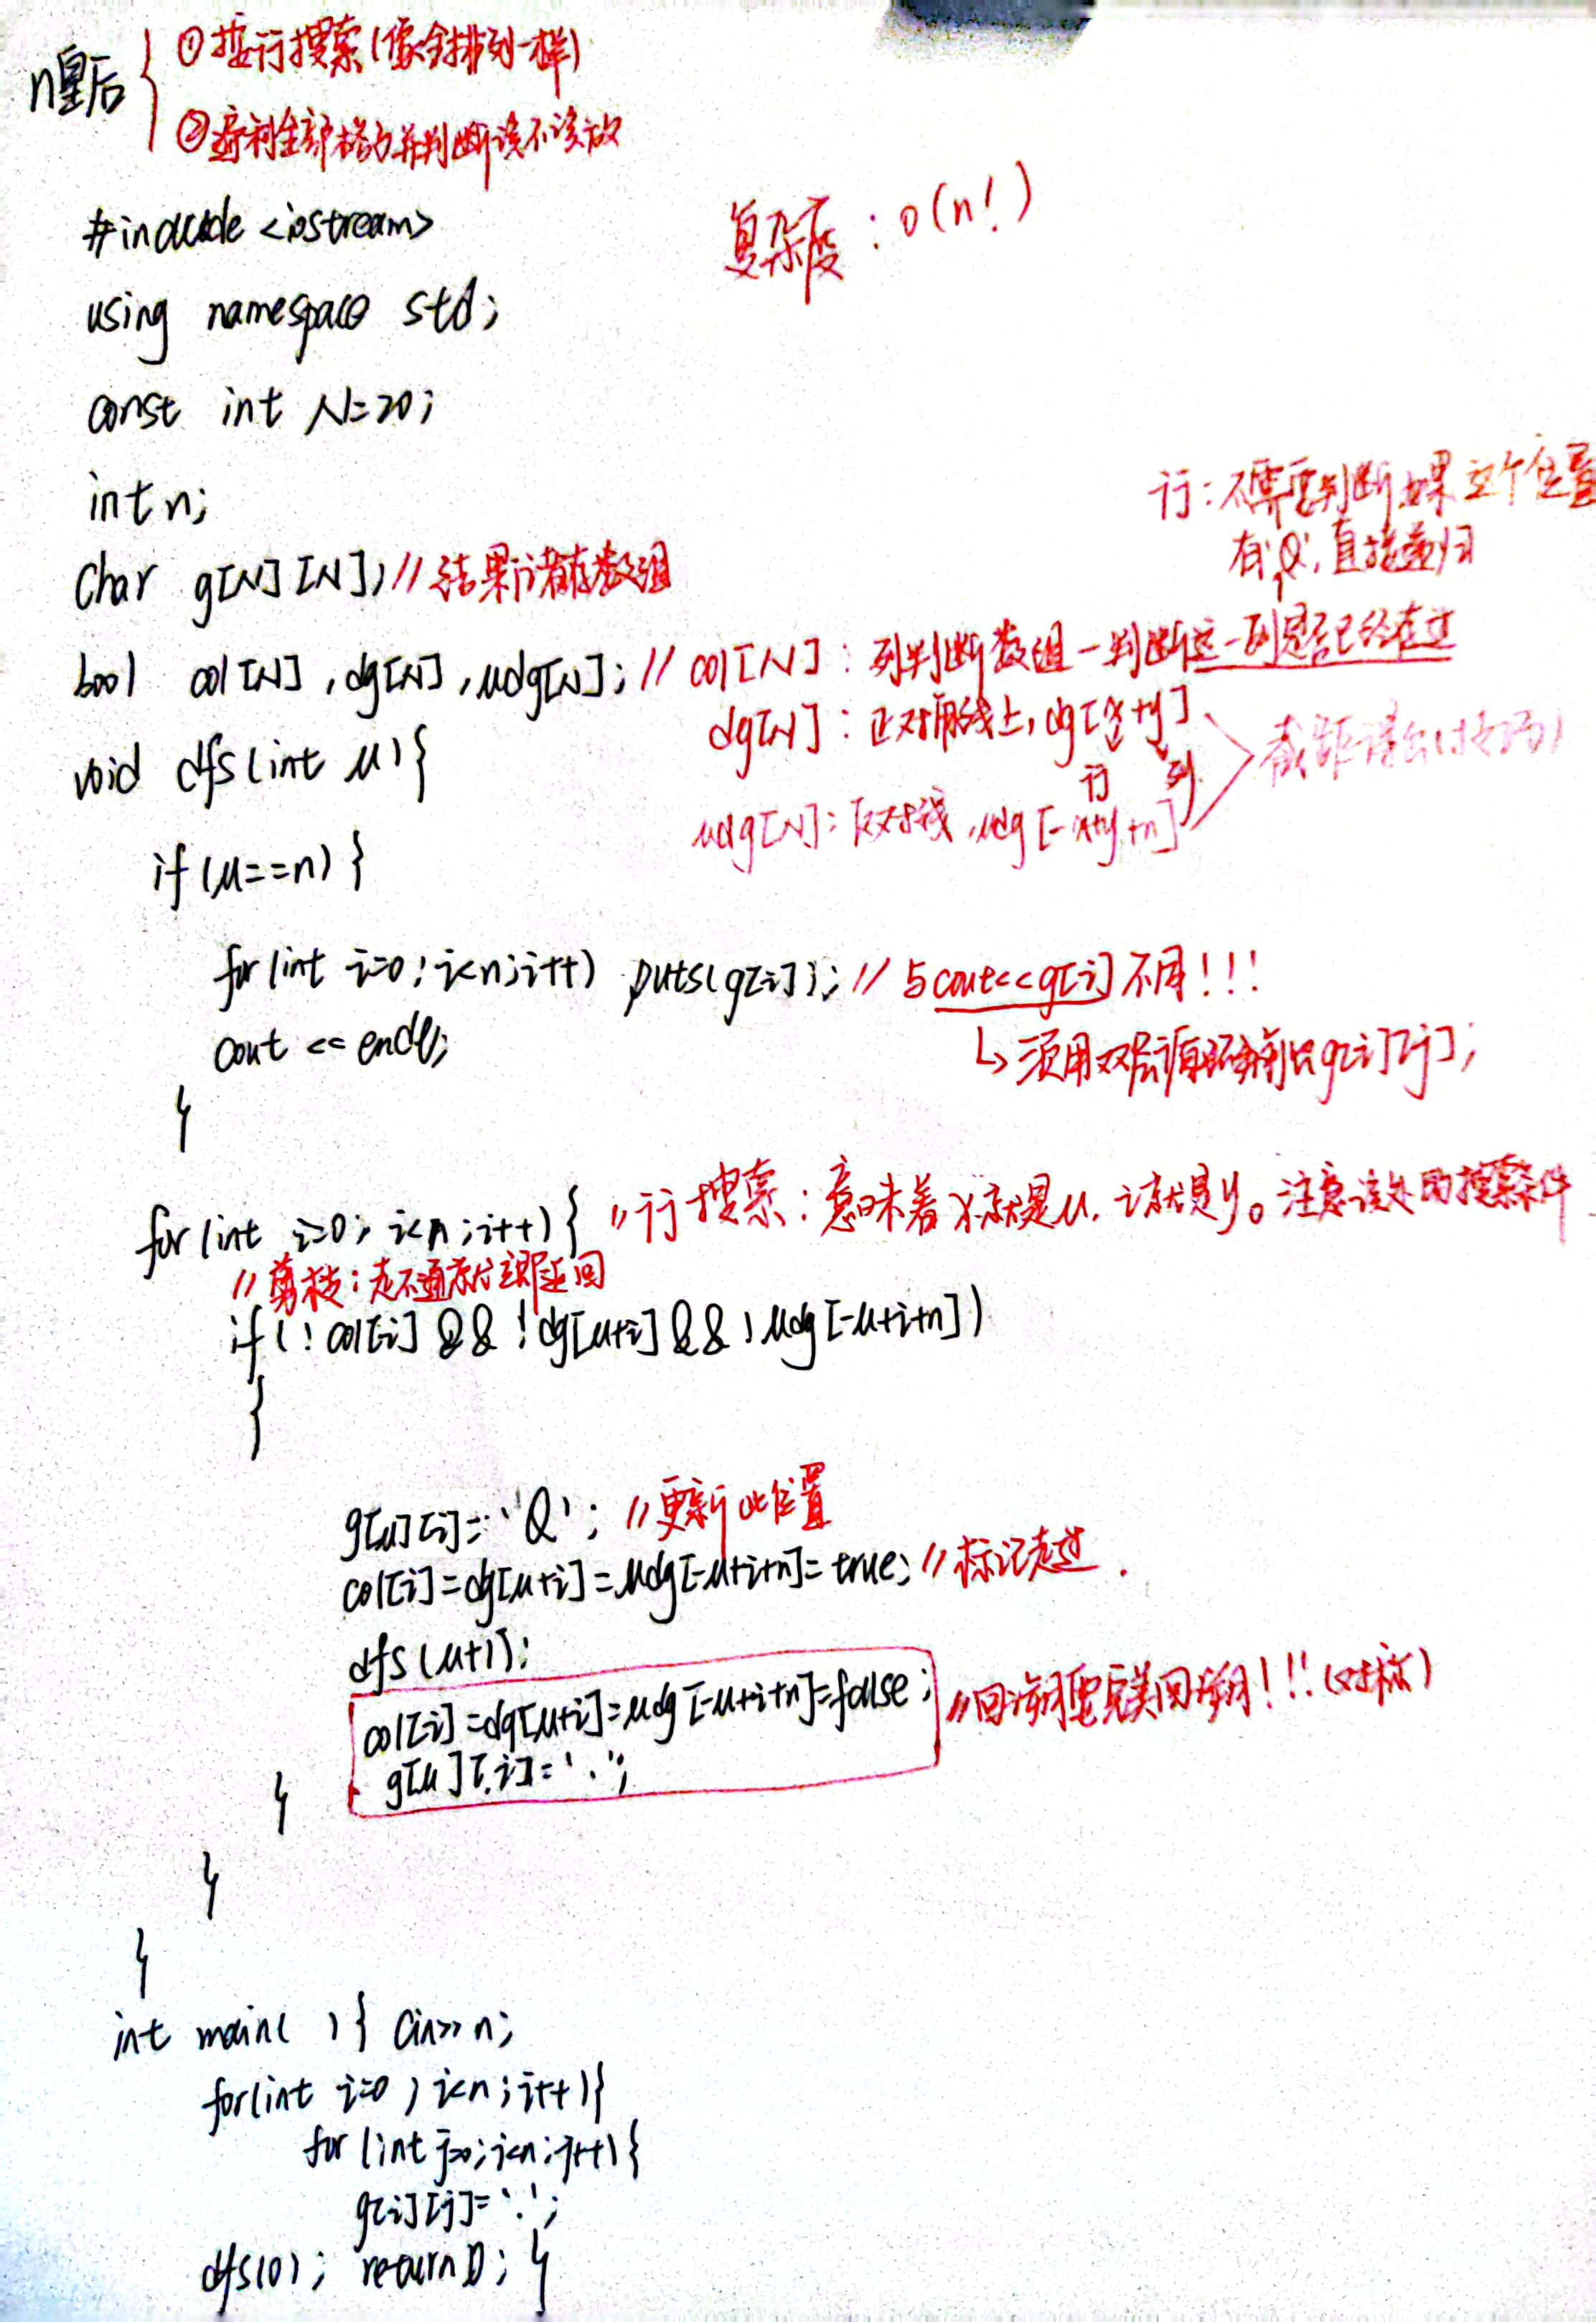 n皇后
①按行搜索(像全排列一样)
②遍利全部格子并判断该不该放
#include <iostream>
复杂度：o(n!)
using namespace std;
const int N=20;
int n;
行：不需要判断如果这个位置
有'Q',直接递归
char g[N][N]; //结果储存数组
bool col[N],dg[N],udg[N]; // col[N]：列判断数组-判断这一列是否已经走过
dg[N]：正对角线上,dg[x+y]
行 列
截距得出(技巧)
udg[N]：反对线,udg[-x+y+n]
void dfs(int u){
if(u==n){
for(int i=0;i<n;i++) puts(g[i]); // 与cout<<g[i]不同!!!
↳须用双层循环输出g[i][j];
cout << endl;
}
for(int i=0; i<n;i++){ //行搜索：意味着x就是u, i就是y。注意该处的搜索条件
//剪枝：走不通就立即返回
if(!col[i] && !dg[u+i] && !udg[-u+i+n])
{
g[u][i]='Q'; //更新此位置
col[i]=dg[u+i]=udg[-u+i+n]=true; //标记走过.
dfs(u+1);
col[i]=dg[u+i]=udg[-u+i+n]=false; //回溯要完美回溯!!!(对称)
g[u][i]='.';
}
}
}
int main( ){ cin>>n;
for(int i=0;i<n;i++){
for(int j=0;j<n;j++){
g[i][j]='.';
dfs(0); return 0; }